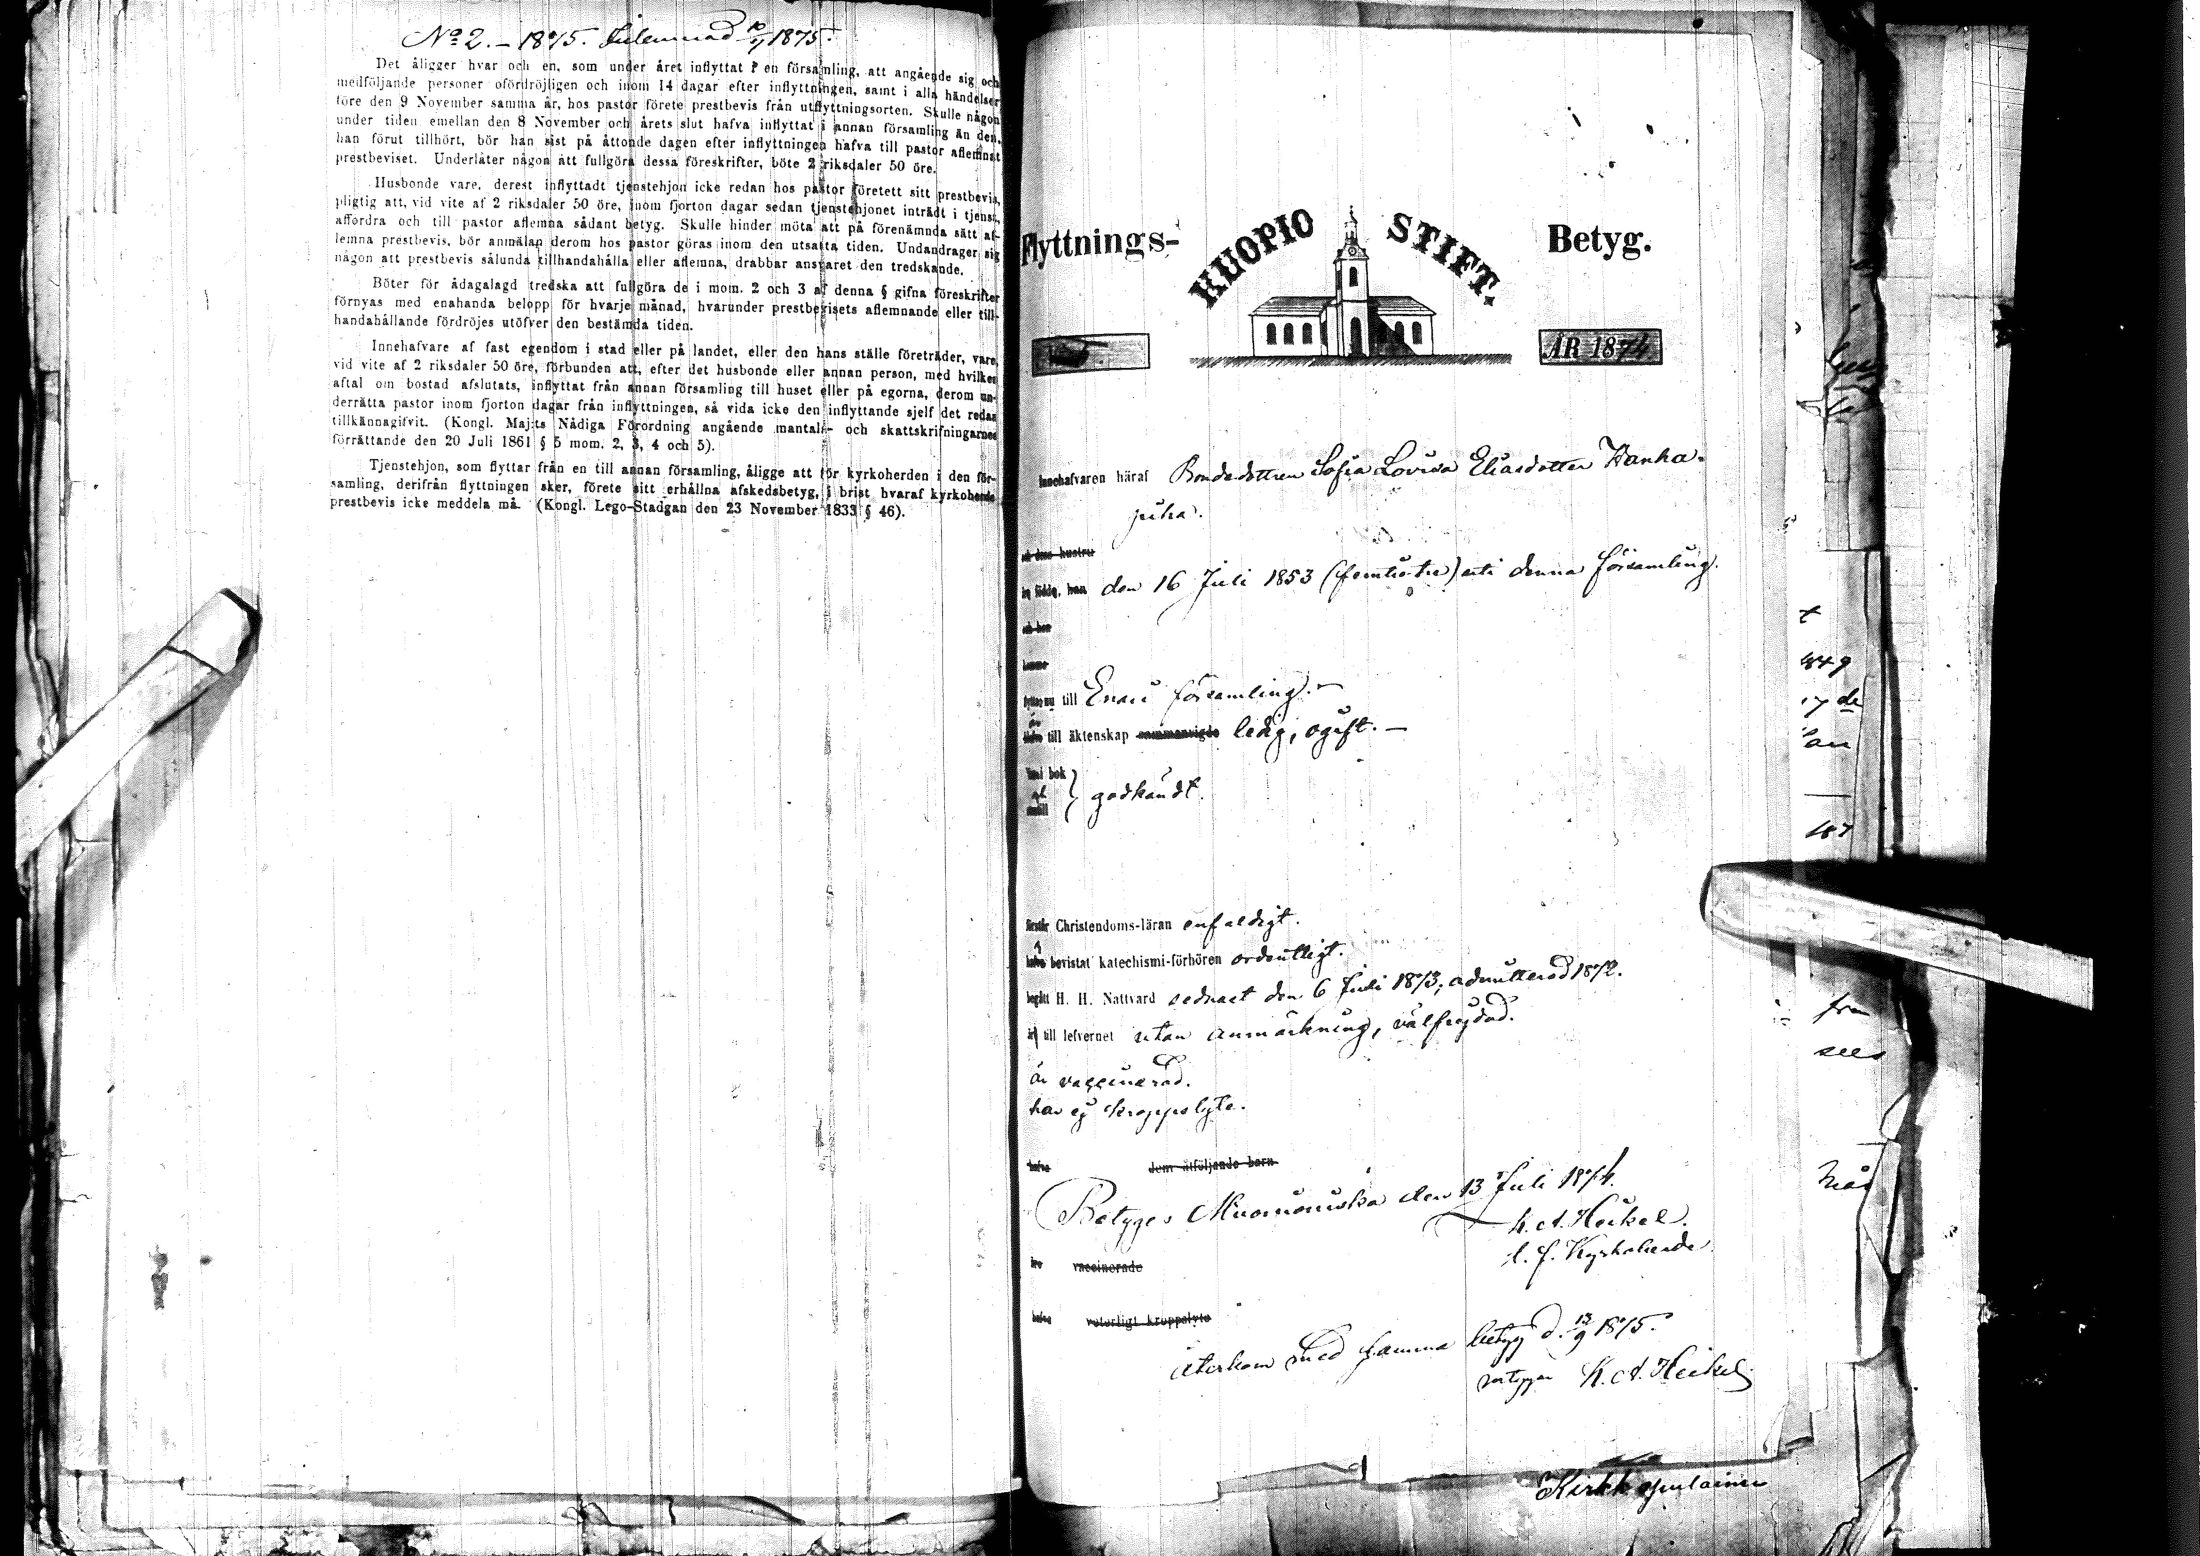 No 2. – 1875. Inlemnad 12/9 1875.
Det åligger hvar och en, som under året inflyttat i en församling, att angående sig och
medföljande personer ofördröjligen och inom 14 dagar efter inflyttningen, samt i alla händelser
före den 9 November samma år, hos pastor förete prestbevis från utflyttningsorten. Skulle någon
under tiden emellan den 8 November och årets slut hafva inflyttat i annan församling än den,
han förut tillhört, bör han sist på åttonde dagen efter inflyttningen hafva till pastor aflemnat
prestbeviset. Underlåter någon att fullgöra dessa föreskrifter, böte 2 riksdaler 50 öre.
Husbonde vare, derest inflyttadt tjenstehjon icke redan hos pastor företett sitt prestbevis,
pligtig att, vid vite af 2 riksdaler 50 öre, inom fjorton dagar sedan tjenstehjonet inträdt i tjenst,
affordra och till pastor aflemna sådant betyg. Skulle hinder möta att på förenämnda sätt af-
lemna prestbevis, bör anmälan derom hos pastor göras inom den utsatta tiden. Undandrager sig
någon att prestbevis sålunda tillhandahålla eller aflemna, drabbar ansvaret den tredskande.
Böter för ådagalagd tredska att fullgöra de i mom. 2 och 3 af denna § gifna föreskrifter
förnyas med enahanda belopp för hvarje månad, hvarunder prestbevisets aflemnande eller till-
handahållande fördröjes utöfver den bestämda tiden.
Innehafvare af fast egendom i stad eller på landet, eller den hans ställe företräder, vare,
vid vite af 2 riksdaler 50 öre, förbunden att, efter det husbonde eller annan person, med hvilken
aftal om bostad afslutats, inflyttat från annan församling till huset eller på egorna, derom un-
derrätta pastor inom fjorton dagar från inflyttningen, så vida icke den inflyttande sjelf det redan
tillkännagifvit. (Kongl. Maj:ts Nådiga Förordning angående mantals- och skattskrifningarnes
förrättande den 20 Juli 1861 § 5 mom. 2, 3, 4 och 5).
Tjenstehjon, som flyttar från en till annan församling, åligge att för kyrkoherden i den för-
samling, derifrån flyttningen sker, förete sitt erhållna afskedsbetyg, i brist hvaraf kyrkoherde
prestbevis icke meddela må. (Kongl. Lego-Stadgan den 23 November 1833 § 46).
Flyttnings- KUOPIO STIFT. Betyg.
ÅR 1874
Innehafvaren häraf Bondedottren Sofia Lovisa Eliasdotter Wanha-
piha.
och dess hustru
den 16 Juli 1853 (femtiotre) uti denna församling.
och hon
till Enari församling. –
är till äktenskap sammanvigde ledig, ogift. –
bok
godkändt.
förstår Christendoms-läran enfaldigt.
bevistat katechismi-förhören ordentligt.
begått H. H. Nattvard sednast den 6 Juli 1873, admitterad 1872.
är till lefvernet utan anmärkning, välfrejdad.
är vaccinerad.
har ej kroppslyte.
hafva dem åtföljande barn
Betygas Muonioniska den 13 Juli 1874.
K. A. Heikel.
t. f. Kyrkoherde.
äro vaccinerade
hafva veterligt kroppslyte
Återkom med samma betyg d. 12/9 1875.
betygar K. A. Heikel
t
17 de
an
187
fra